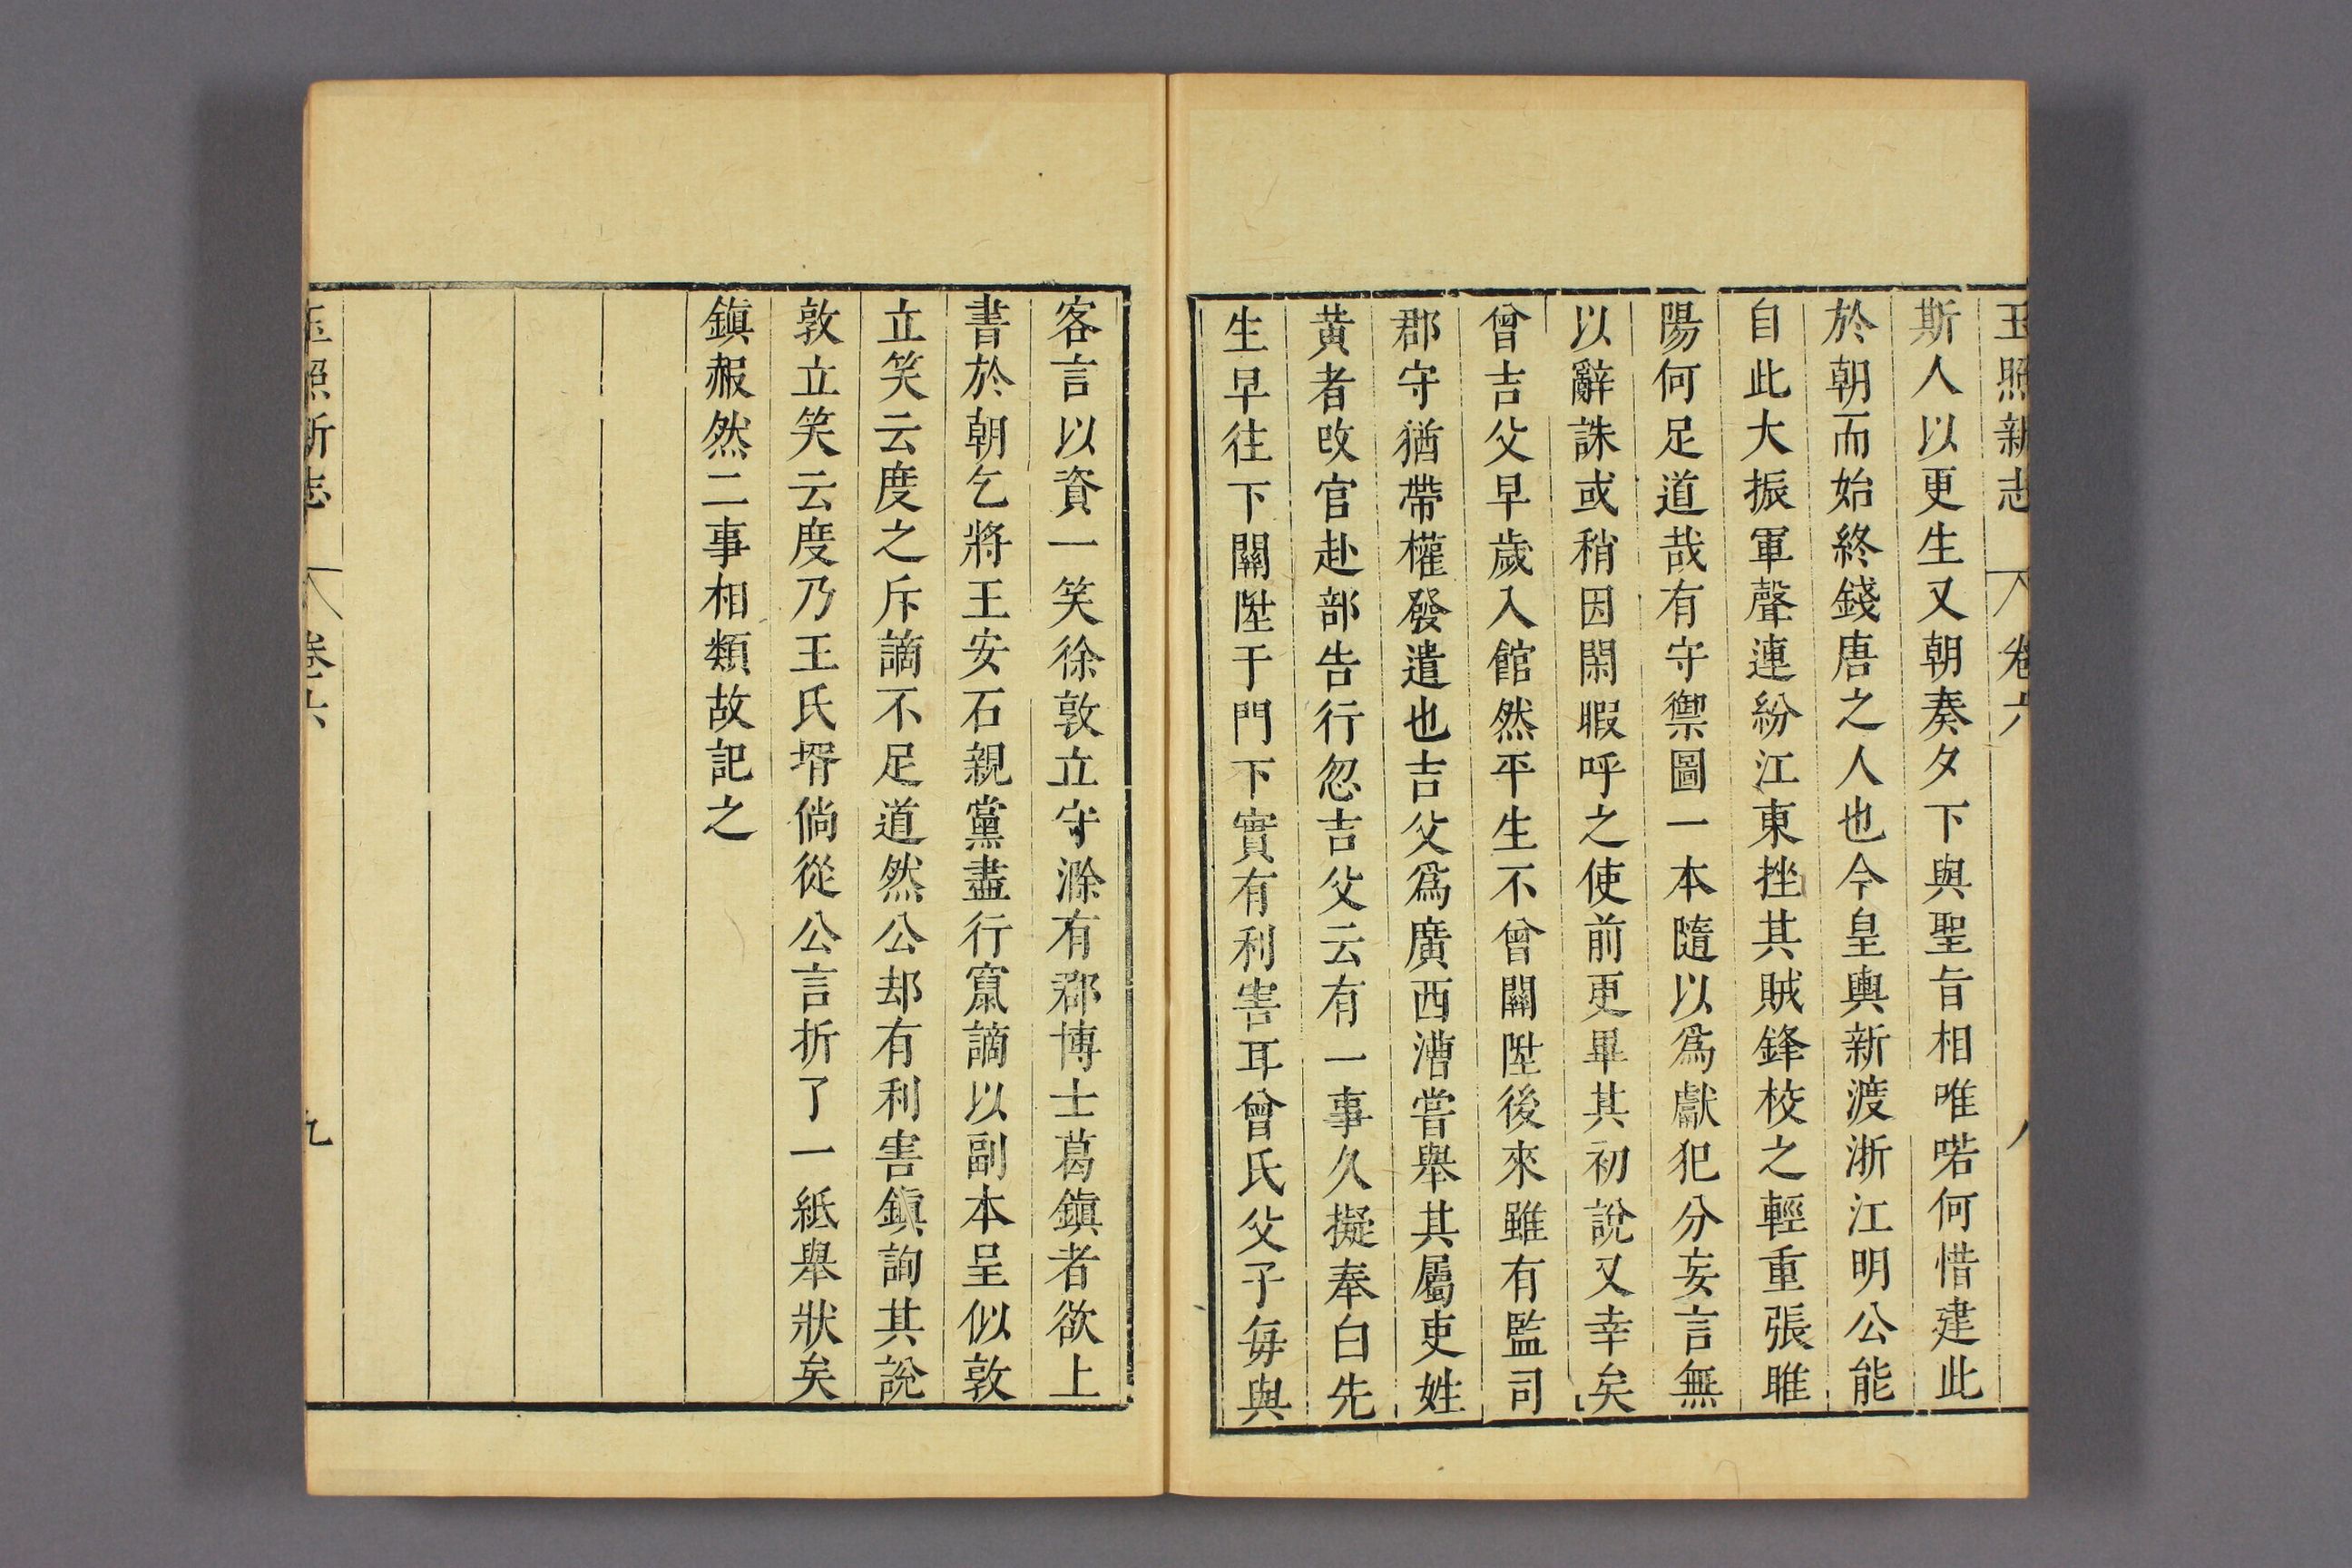 玉照新志 卷六 八
斯人以更生又朝奏夕下與聖旨相唯喏何惜建此
於朝而始終錢唐之人也今皇輿新渡浙江明公能
自此大振軍聲連紛江東挫其賊鋒校之輕重張睢
陽何足道哉有守禦圖一本隨以爲獻犯分妄言無
以辭誅或稍因閑暇呼之使前更畢其初說又幸矣
曾吉父早歲入館然平生不曾關陞後來雖有監司
郡守猶帶權發遣也吉父爲廣西漕嘗舉其屬吏姓
黃者改官赴部告行忽吉父云有一事久擬奉白先
生早往下關陞于門下實有利害耳曾氏父子每與
客言以資一笑徐敦立守滁有郡博士葛鎭者欲上
書於朝乞將王安石親黨盡行竄謫以副本呈似敦
立笑云度之斥謫不足道然公却有利害鎭詢其說
敦立笑云度乃王氏壻倘從公言折了一紙舉狀矣
鎭赧然二事相類故記之
玉照新志 卷六 九